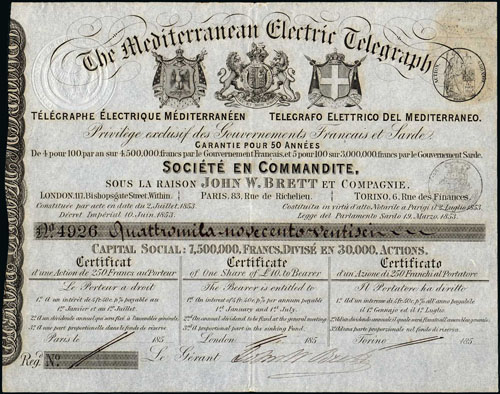 The Mediterranean Electric Telegraph
TÉLÉGRAPHE ÉLECTRIQUE MÉDITERRANÉEN
TELEGRAFO ELETTRICO DEL MEDITERRANEO.
Privilège exclusif des Gouvernements Français et Sarde
GARANTIE POUR 50 ANNÉES
De 4 pour 100 par an sur 4,500,000 francs par le Gouvernement Français, et 5 pour 100 sur 3,000,000 francs par le Gouvernement Sarde.
SOCIÉTÉ EN COMMANDITE,
SOUS LA RAISON JOHN W. BRETT ET COMPAGNIE,
LONDON, 117, Bishopsgate Street, Within.
PARIS, 83, Rue de Richelieu.
TORINO, 6, Rue des Finances.
Constituée par acte en date du 2 Juillet 1853.
Constituita in virtù d'atto, Notarile a Parigi il 2 Luglio 1853.
Décret Impérial 10 Juin, 1853.
Legge del Parlamento Sardo 19, Marzo, 1853.
No. 4926 Quattromila-novecento-ventisei
CAPITAL SOCIAL: 7,500,000, FRANCS, DIVISÉ EN 30,000, ACTIONS.
Certificat
d'une Action de 250 Francs au Porteur
Le Porteur a droit
1º A un intérêt de 4 ft. 50c. p% payable au
1er Janvier et au 1er Juillet.
3º A une part proportionelle dans le fonds de réserve
Paris le 185
Certificate
of One Share of £10, to Bearer
The Bearer is entitled to
1º An interest of 4 ft. 50c. p% per annum payable
1st January and 1st July.
2º The annual dividend to be fixed at the general meeting
3º A proportional part in the sinking Fund.
London 185
Certificato
d'un Azione di 250 Franchi al Portatore
Il Portatore ha diritto
1º Ad un interesse di 4 ft. 50c. p% all'anno pagabile
il 1º Gennajo ed il 1º Luglio.
Torino 185
Regé No.
Le Gérant